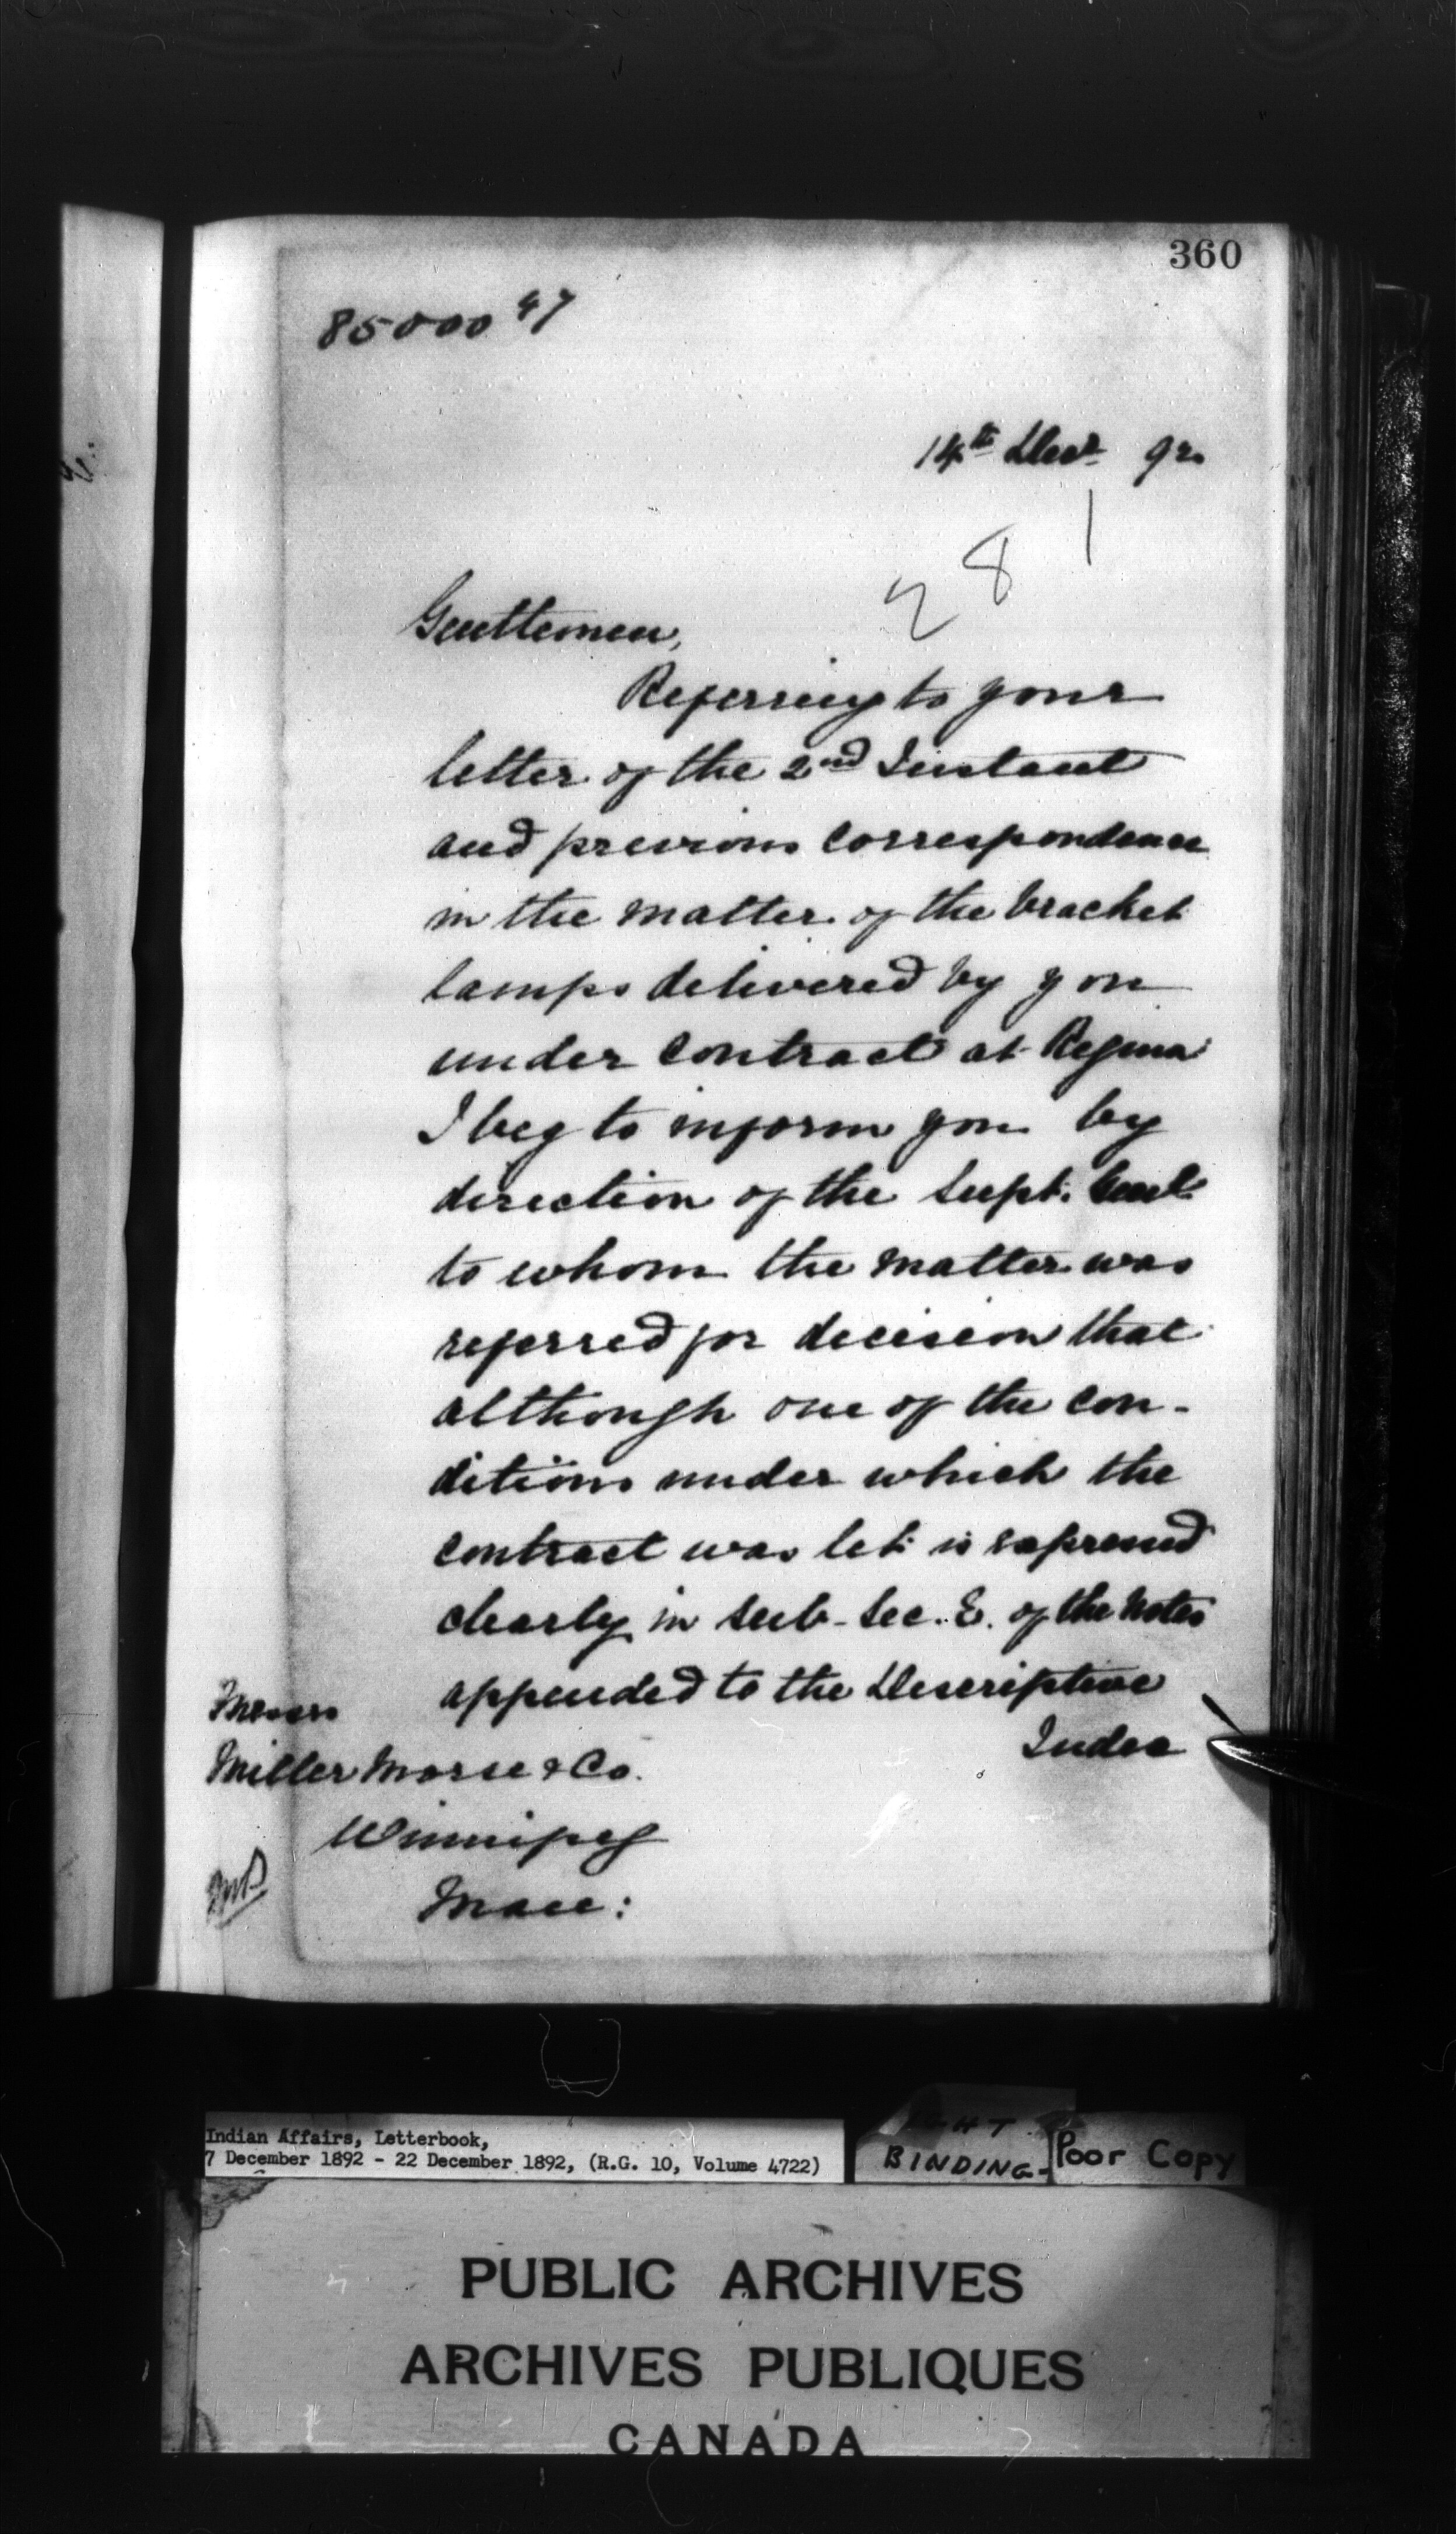 360
85000 47
14th Decr 92
281
Gentlemen,
Referring to your
letter of the 2nd Instant
and previous correspondence
in the matter of the bracket
lamps delivered by you
under contract at Regina
I beg to inform you by
direction of the Supt. Genl.
to whom the matter was
referred for decision that
although one of the con-
ditions under which the
contract was let is expressed
clearly in Sub-Sec. E. of the Notes
appended to the Descriptive
Index
Messrs
Miller Morse & Co.
Winnipeg
Man:
Indian Affairs, Letterbook,
7 December 1892 - 22 December 1892, (R.G. 10, Volume 4722)
BINDING-
Poor Copy
PUBLIC ARCHIVES
ARCHIVES PUBLIQUES
CANADA